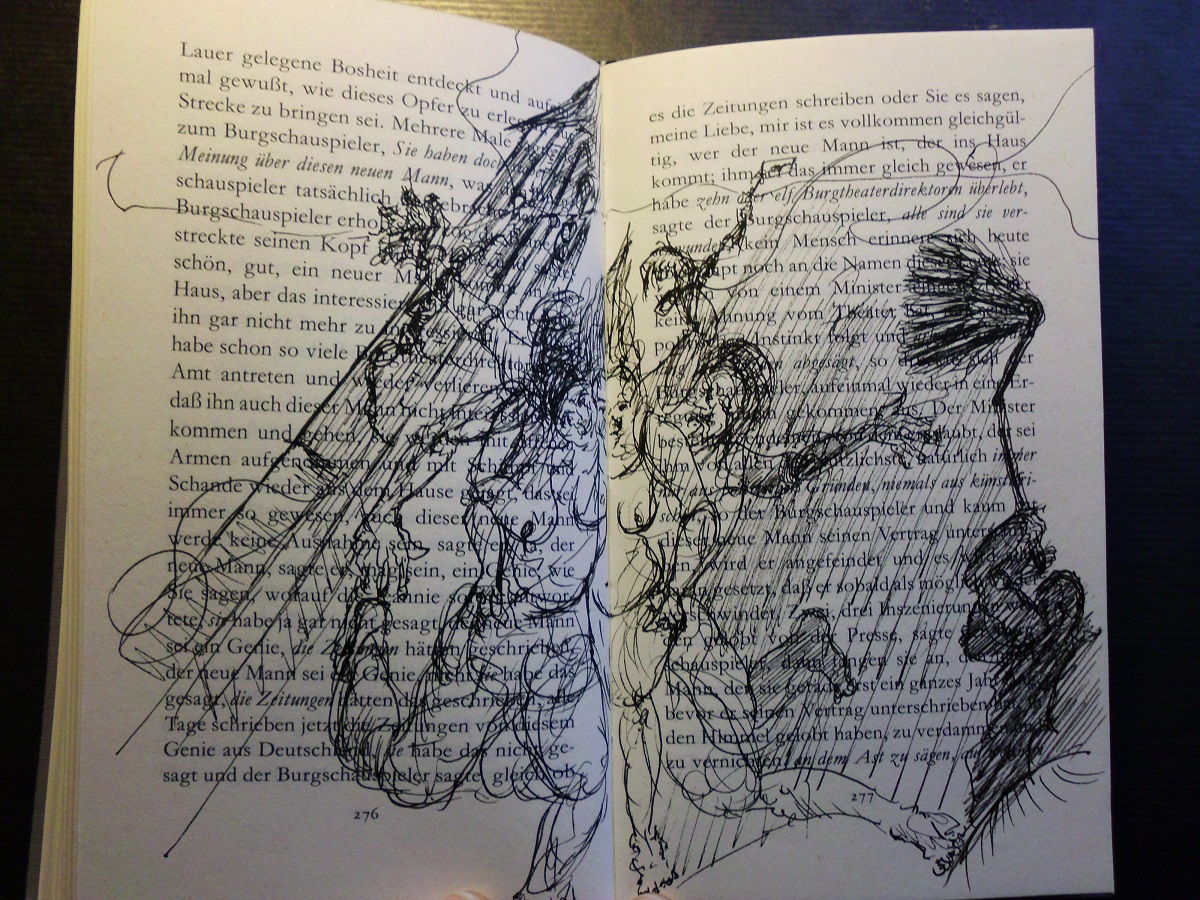 Lauer gelegene Bosheit entdeckt und aufein-
mal gewußt, wie dieses Opfer zu erle
Strecke zu bringen sei. Mehrere Male
zum Burgschauspieler, Sie haben doch
Meinung über diesen neuen Mann, was
schauspieler tatsächlich
Burgschauspieler erho
streckte seinen Kopf
schön, gut, ein neuer
Haus, aber das interessier
ihn gar nicht mehr zu
habe schon so viele
Amt antreten und wieder verlieren
daß ihn auch dieser Mann nicht
kommen und gehen, sie werden mit
Armen aufgenommen und mit Schimpf und
Schande wieder aus dem Hause gejagt, das sei
immer so gewesen, auch dieser neue Mann
werde keine Ausnahme sein, sagte er, der
neue Mann, sagte er, mag sein, ein Genie, wie
Sie sagen, worauf die Jeannie sofort antwor-
tete, sie habe ja gar nicht gesagt, der neue Mann
sei ein Genie, die Zeitungen hätten geschrieben,
der neue Mann sei ein Genie, nicht sie habe das
gesagt, die Zeitungen hätten das geschrieben, alle
Tage schrieben jetzt die Zeitungen von diesem
Genie aus Deutschland, sie habe das nicht ge-
sagt und der Burgschauspieler sagte gleich, ob
276
es die Zeitungen schreiben oder Sie es sagen,
meine Liebe, mir ist es vollkommen gleichgül-
tig, wer der neue Mann ist, der ins Haus
kommt; ihm sei das immer gleich gewesen, er
habe zehn oder elf Burgtheaterdirektoren überlebt,
sagte der Burgschauspieler, alle sind sie ver-
schwunden, kein Mensch erinnere sich heute
überhaupt noch an die Namen dieser Leute, sie
von einem Minister
keine Ahnung vom Theater hat,
Instinkt folgt und
abgesägt, so
aufeinmal wieder in eine Er-
gekommen aus. Der Minister
glaubt, der sei
ihm von allen nützlichste, natürlich immer
nur aus politischen Gründen, niemals aus künstleri-
schen, so der Burgschauspieler und kaum
dieser neue Mann seinen Vertrag unterschrieben,
wird er angefeindet und es
gesetzt, daß er sobald als möglich
verschwindet. Zwei, drei Inszenierungen
gelobt von der Presse, sagte
schauspieler, dann fangen sie an, den
Mann, den sie gerade erst ein ganzes Jahr
bevor er seinen Vertrag unterschrieben
den Himmel gelobt haben, zu verdammen
zu vernichten, an dem Ast zu sägen, auf
277